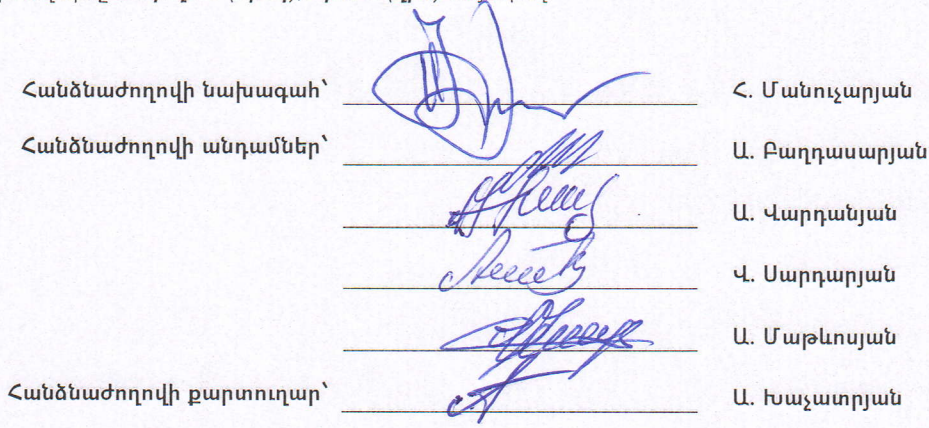 Հանձնաժողովի նախագահ՝ Հ. Մանուչարյան
Հանձնաժողովի անդամներ՝ Ա. Բաղդասարյան
Ա. Վարդանյան
Վ. Սարդարյան
Ա. Մաթևոսյան
Հանձնաժողովի քարտուղար՝ Ա. Խաչատրյան